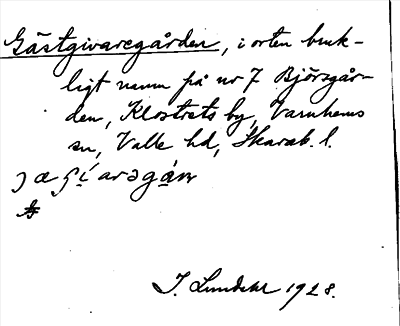 Gästgivaregården, i orten bruk-
ligt namn på nr 7 Björsgår-
den, Klostrets by, Varnhems
sn, Valle hd, Skarab. l.

I. Lundahl 1928.